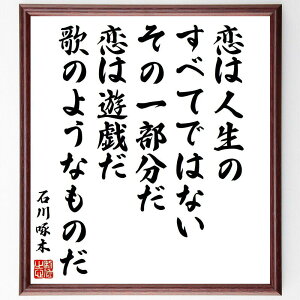 恋は人生の
すべてではない
その一部分だ
恋は遊戯だ
歌のようなものだ
石川啄木